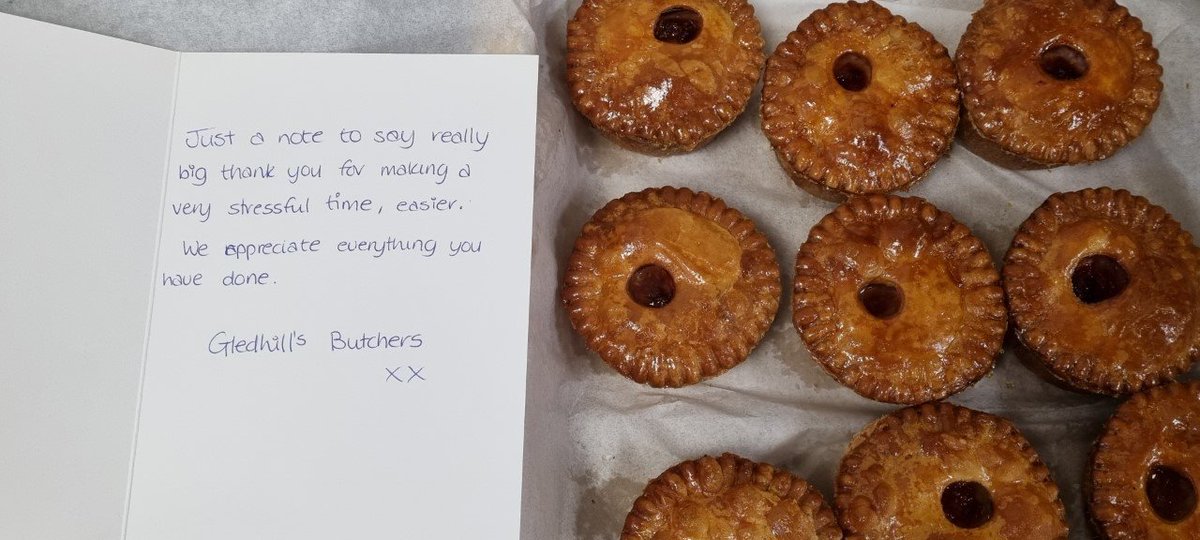 Just a note to say really
big thank you for making a
very stressful time, easier.
We appreciate everything you
have done.
Gledhill's Butchers
xx